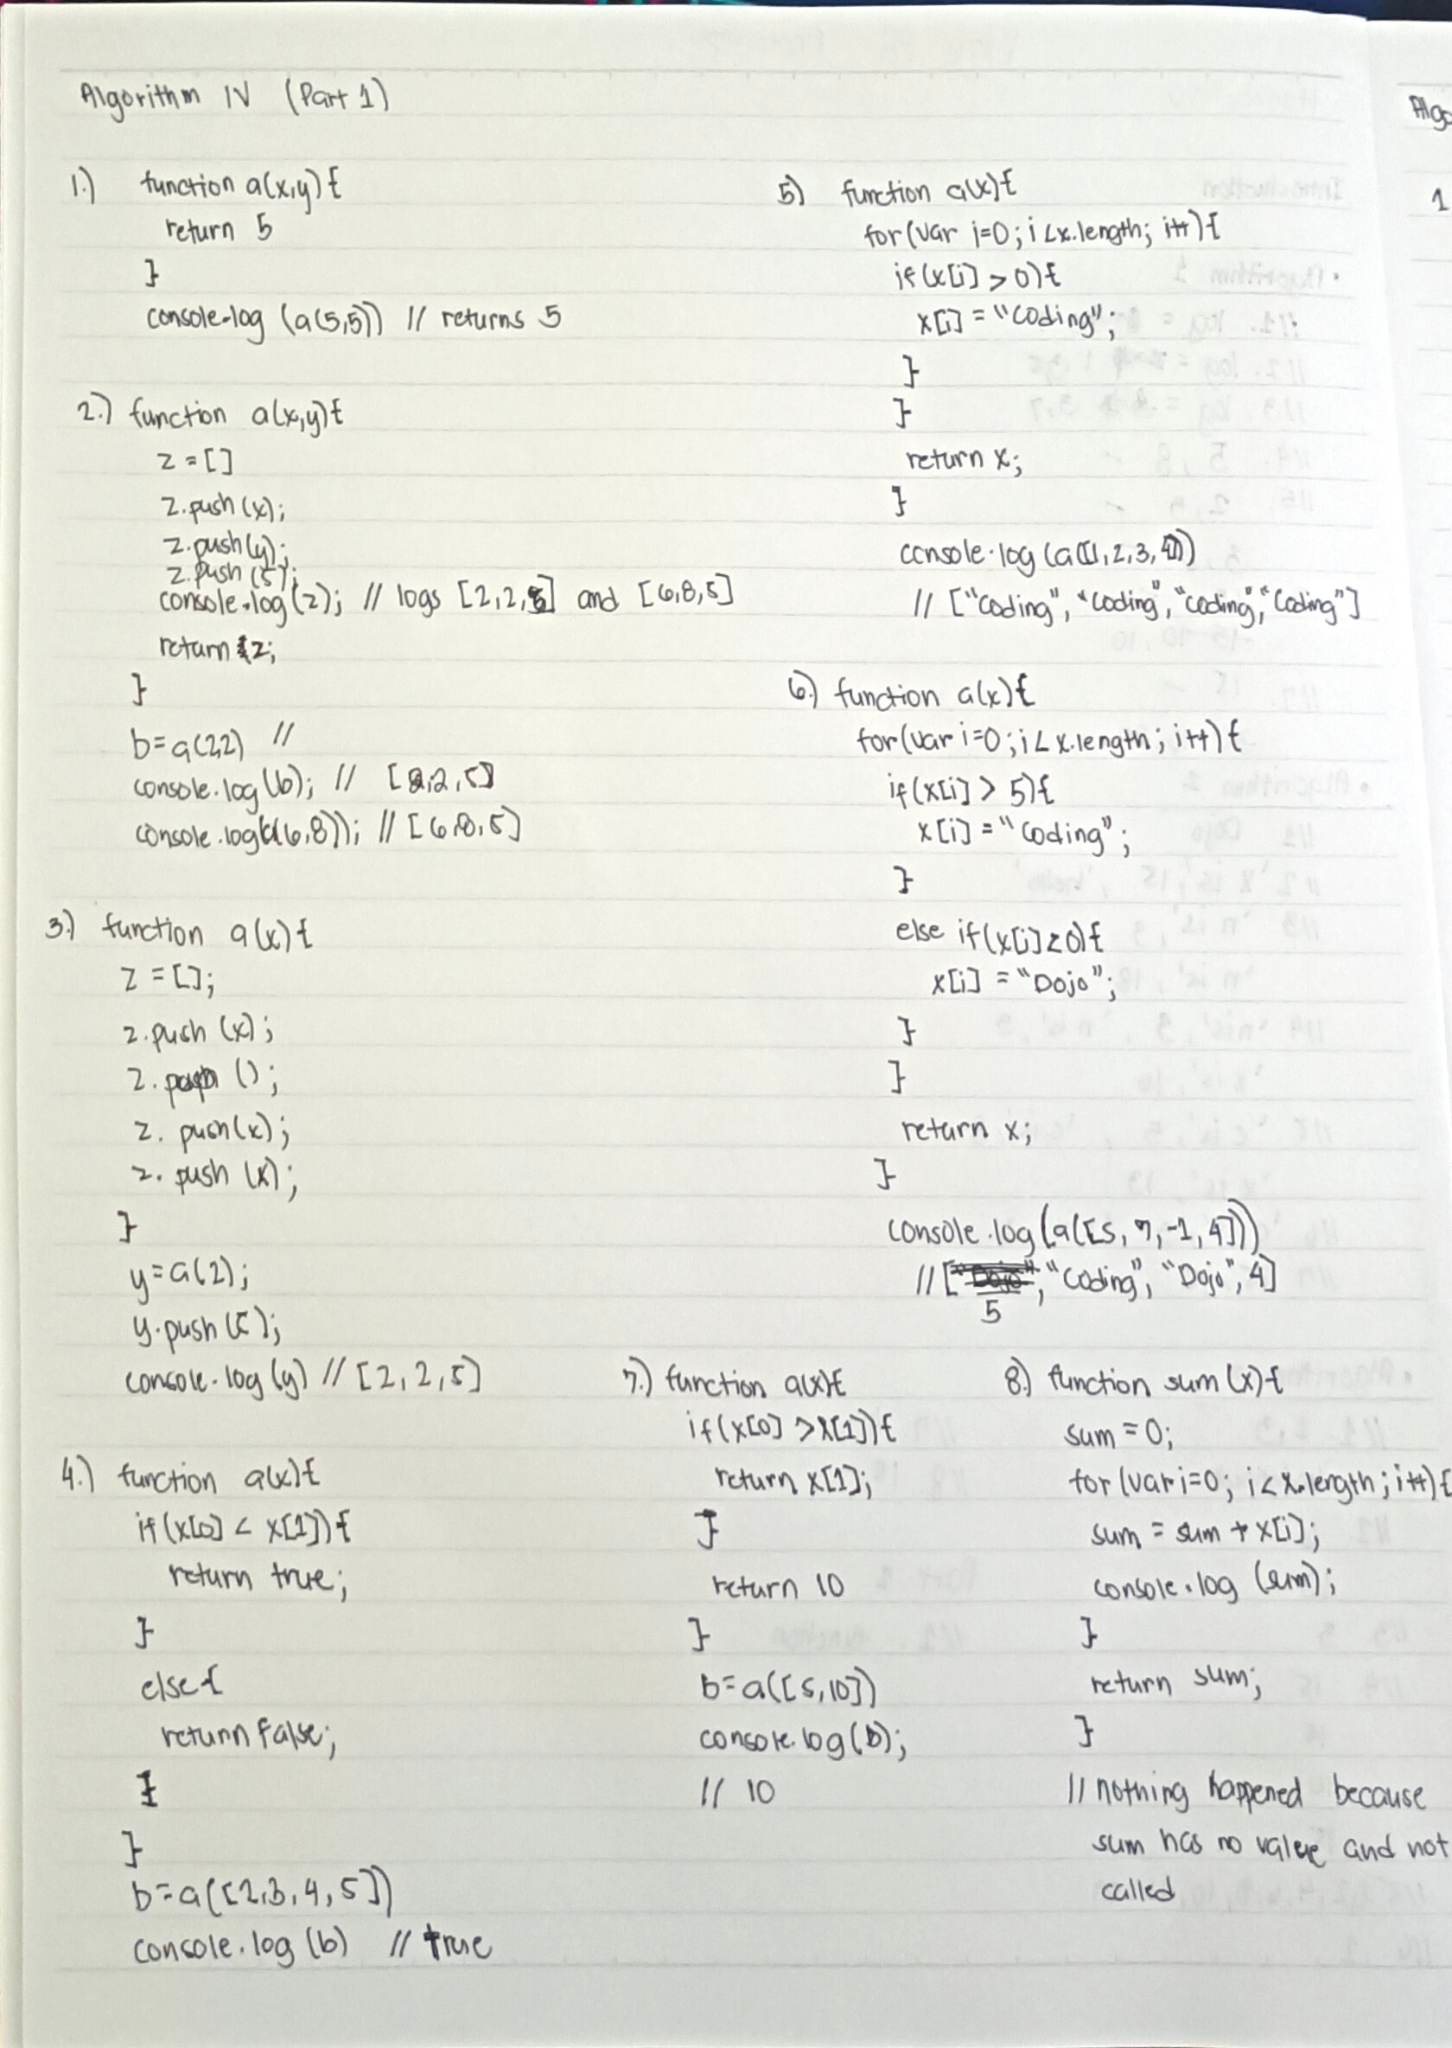 Algorithm IV (Part 1)
1.) function a(x,y){
return 5
}
console.log (a(5,5)) // returns 5
2.) function a(x,y){
z = []
z.push(x);
z.push(y);
z.push(5);
console.log(z); // logs [2,2,5] and [6,8,5]
return z;
}
b=a(2,2) //
console.log(b); // [2,2,5]
console.log(a(6,8)); // [6,8,5]
3.) function a(x){
z = [];
z.push (x);
z. pop ();
z. push(x);
z. push (x);
}
y=a(2);
y.push(5);
console.log(y) // [2,2,5]
4.) function a(x){
if(x[0] < x[1]){
return true;
}
else{
return false;
}
}
b=a([2,3,4,5])
console.log(b) // true
5) function a(x){
for(var i=0; i<x.length; i++){
if(x[i] > 0){
x[i] = "Coding";
}
}
return x;
}
console.log (a([1,2,3,4]))
// ["Coding", "Coding", "Coding", "Coding"]
6.) function a(x){
for(var i=0; i< x.length; i++){
if(x[i] > 5){
x[i] = "Coding";
}
else if(x[i]<0){
x[i] = "Dojo";
}
}
return x;
}
console.log(a([5, 7, -1, 4]))
// [5, "Coding", "Dojo", 4]
7.) function a(x){
if(x[0] > x[1]){
return x[1];
}
return 10
}
b=a([5,10])
console.log(b);
// 10
8.) function sum(x){
sum = 0;
for (var i=0; i<x.length; i++){
sum = sum + x[i];
console.log (sum);
}
return sum;
}
// nothing happened because
sum has no value and not
called
Algo
1